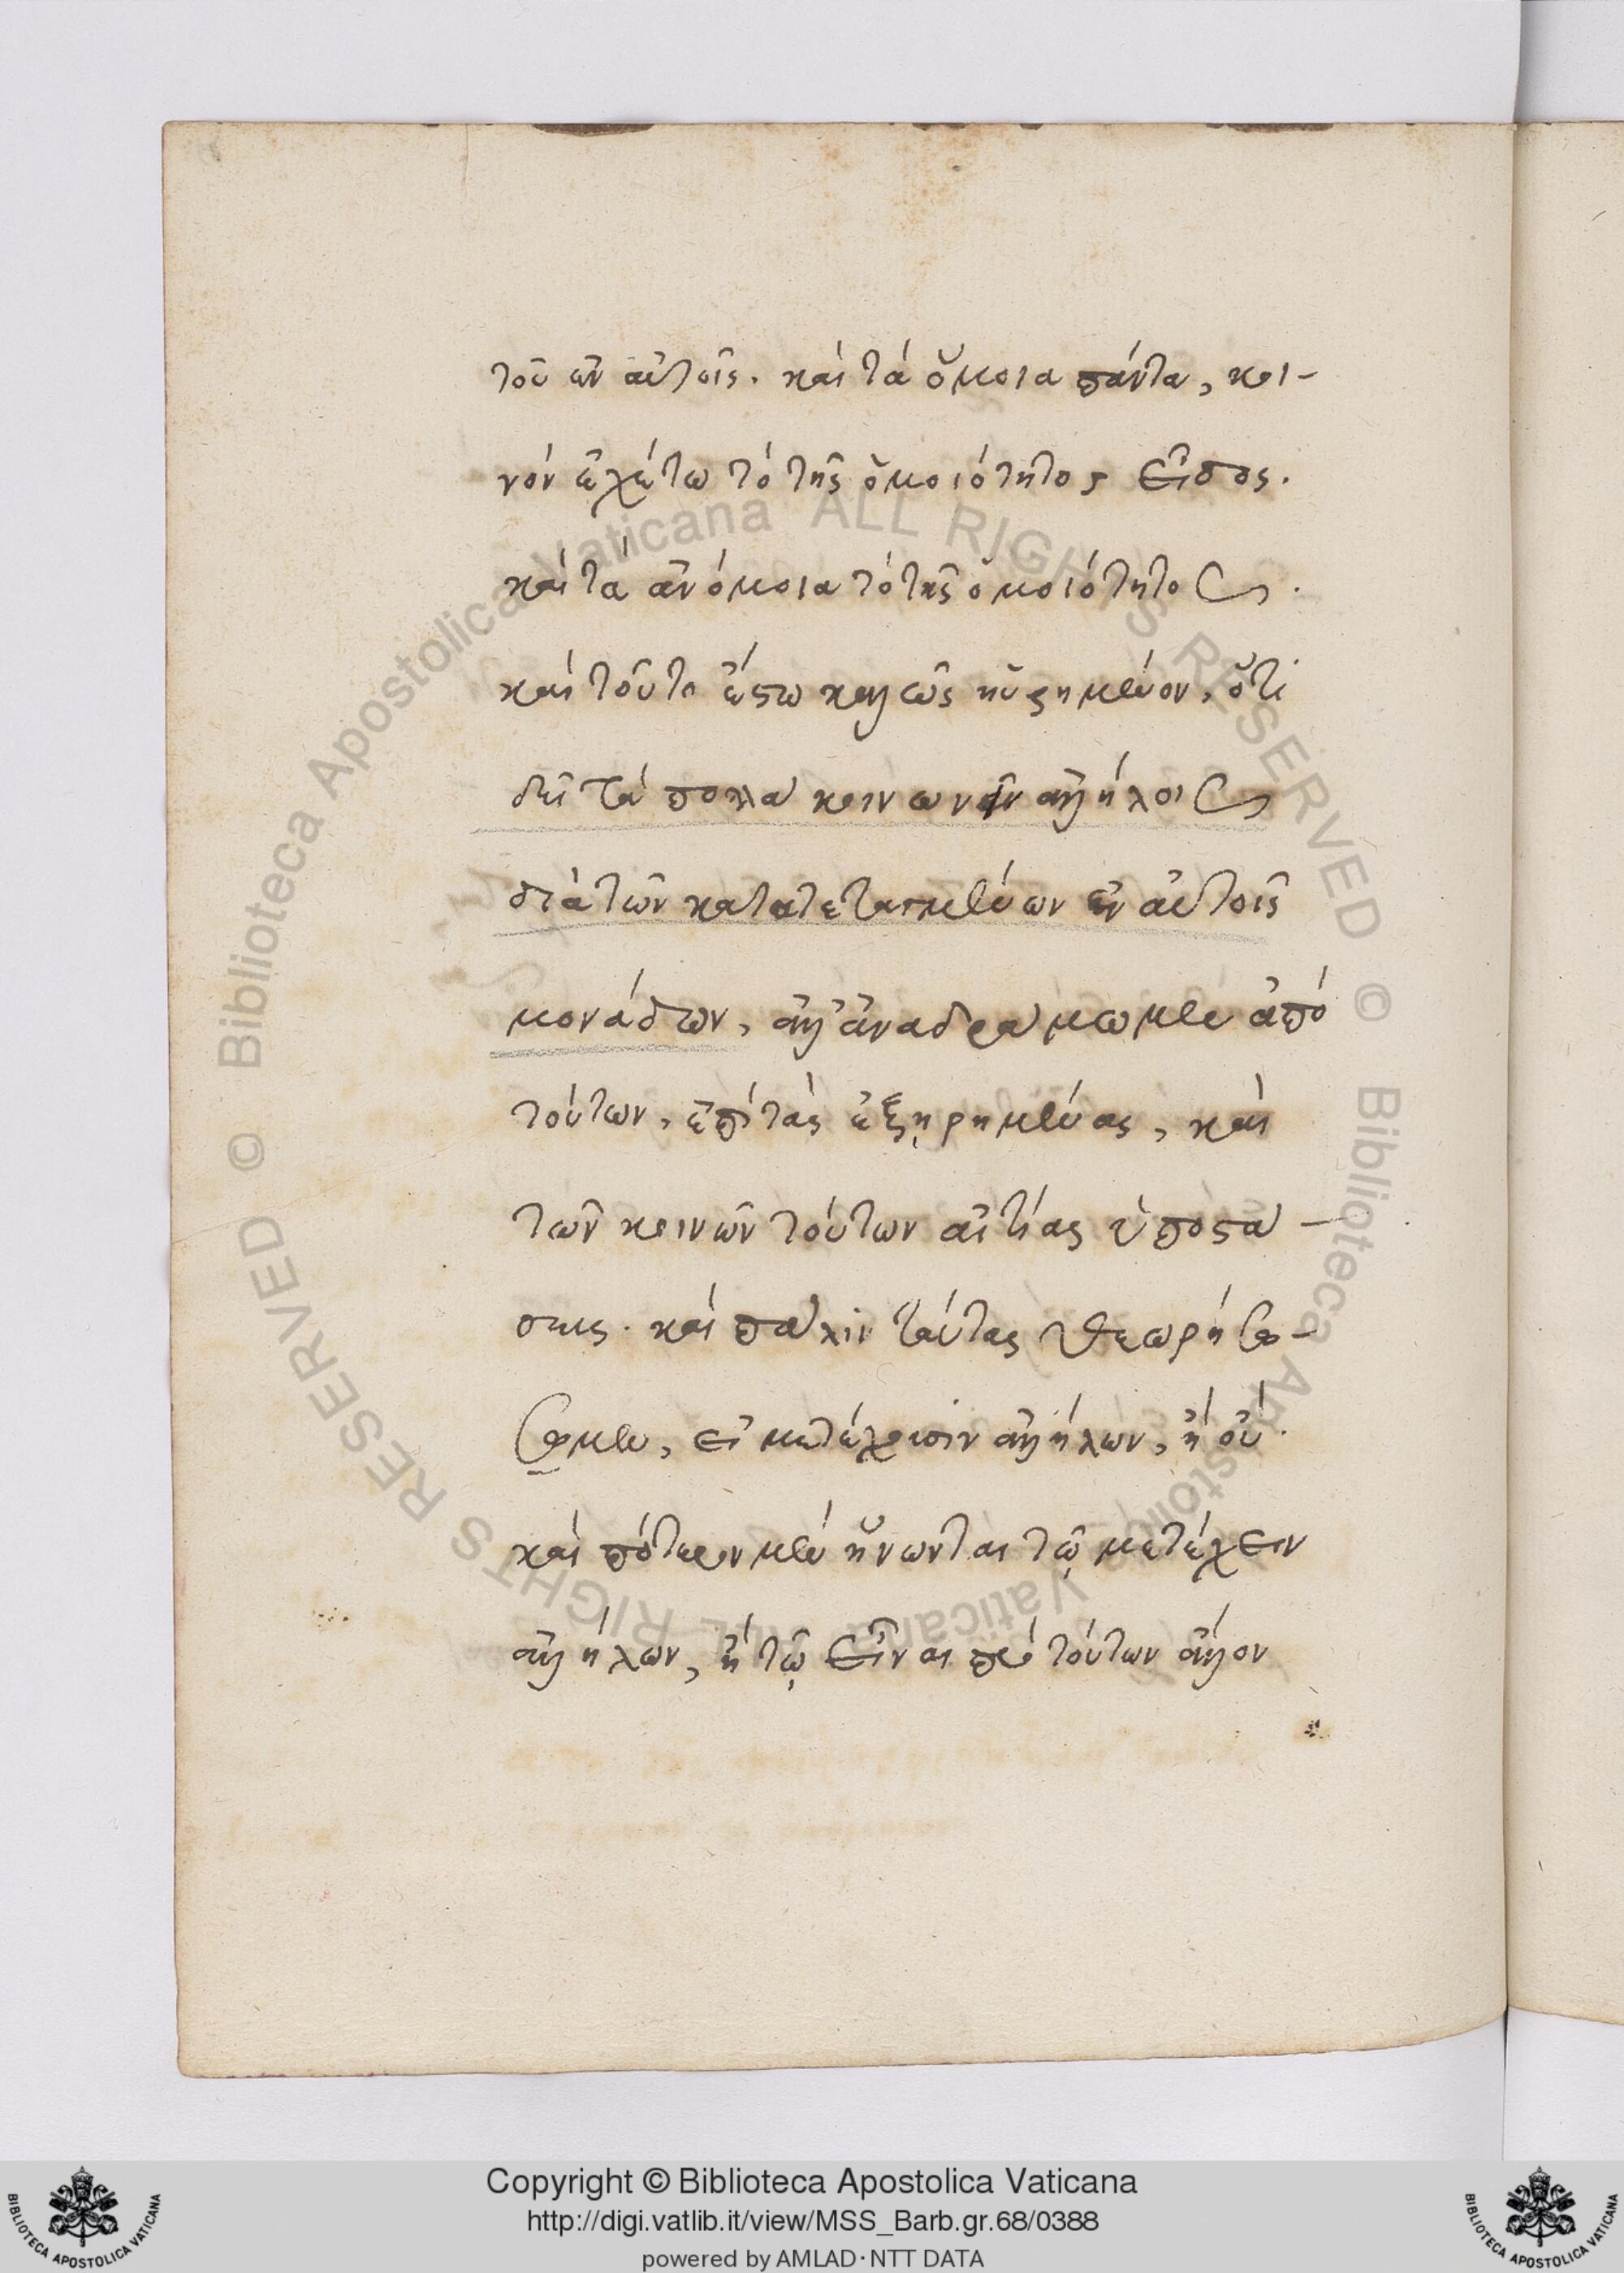 τοῦ ἐν αὐτοῖς. καὶ τὰ ὅμοια πάντα, κοι-
νὸν ἐχέτω τὸ τῆς ὁμοιότητος εἶδος.
καὶ τὰ ἀνόμοια τὸ τῆς ὁμοιότητος.
καὶ τοῦτο ἔστω καλῶς ηὑρημένον, ὅτι
δεῖ τὰ πολλὰ κοινωνεῖν ἀλλήλοις
διὰ τῶν κατατεταγμένων ἐν αὐτοῖς
μονάδων, ἀλλ' ἀναδράμωμεν ἀπὸ
τούτων, ἐπὶ τὰς ἐξῃρημένας, καὶ
τῶν κοινῶν τούτων αἰτίας ὑποστά-
σεως. καὶ πάλιν ταύτας θεωρήσο-
σομεν, εἰ μετέχουσιν ἀλλήλων, ἢ οὔ.
καὶ πότερον μὲν ἥνωνται τῷ μετέχειν
ἀλλήλων, ἢ τῷ εἶναι πρὸ τούτων ἄλλον
Biblioteca Apostolica Vaticana ALL RIGHTS RESERVED ©
Biblioteca Apostolica Vaticana ALL RIGHTS RESERVED ©
Copyright © Biblioteca Apostolica Vaticana
http://digi.vatlib.it/view/MSS_Barb.gr.68/0388
powered by AMLAD·NTT DATA
BIBLIOTECA APOSTOLICA VATICANA
BIBLIOTECA APOSTOLICA VATICANA